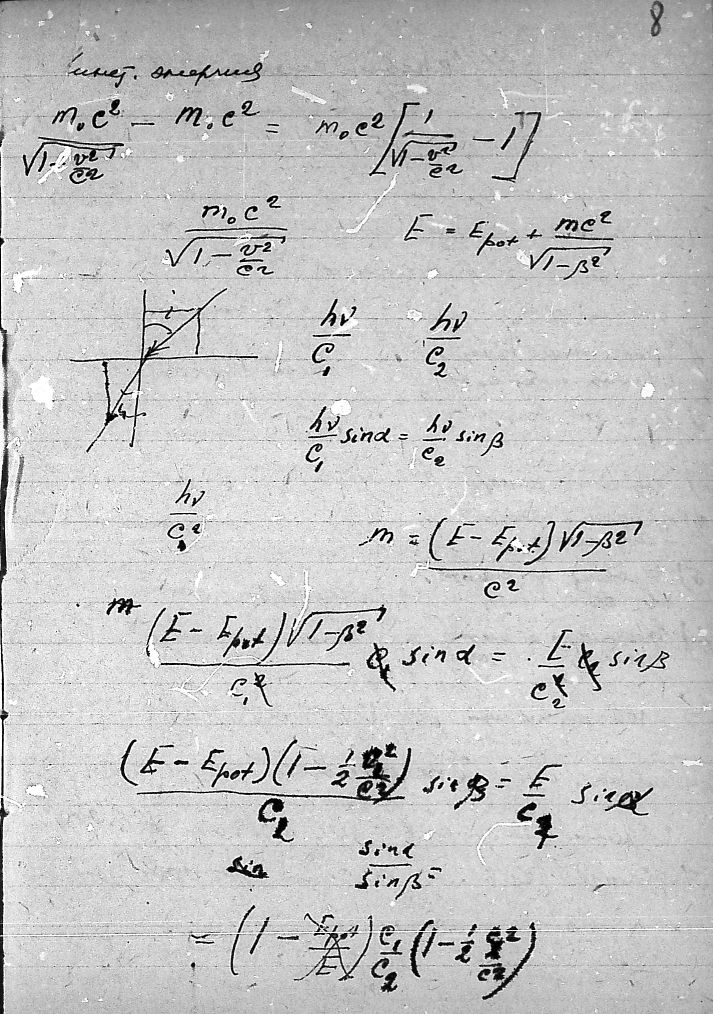 8
Кинет. энергия
m₀c²/√(1 − v²/c²) − m₀c² = m₀c² [1/√(1 − v²/c²) − 1]
m₀c²/√(1 − v²/c²)
E = E_pot + mc²/√(1−β²)
i
hν/C₁ hν/C₂
hν/C₁ sinα = hν/c₂ sinβ
hν/C₁²
m = (E − E_pot)√(1−β²)/c²
(E − E_pot)√(1−β²)/C₁² c₁ sinα = E/C₂² c₂ sinβ
(E − E_pot)(1 − 1/2 v²/c²)/C₂ sinβ = E/C₁ sinα
sin sinα/sinβ =
= (1 − E_pot/E) C₁/C₂ (1 − 1/2 c²/c²)